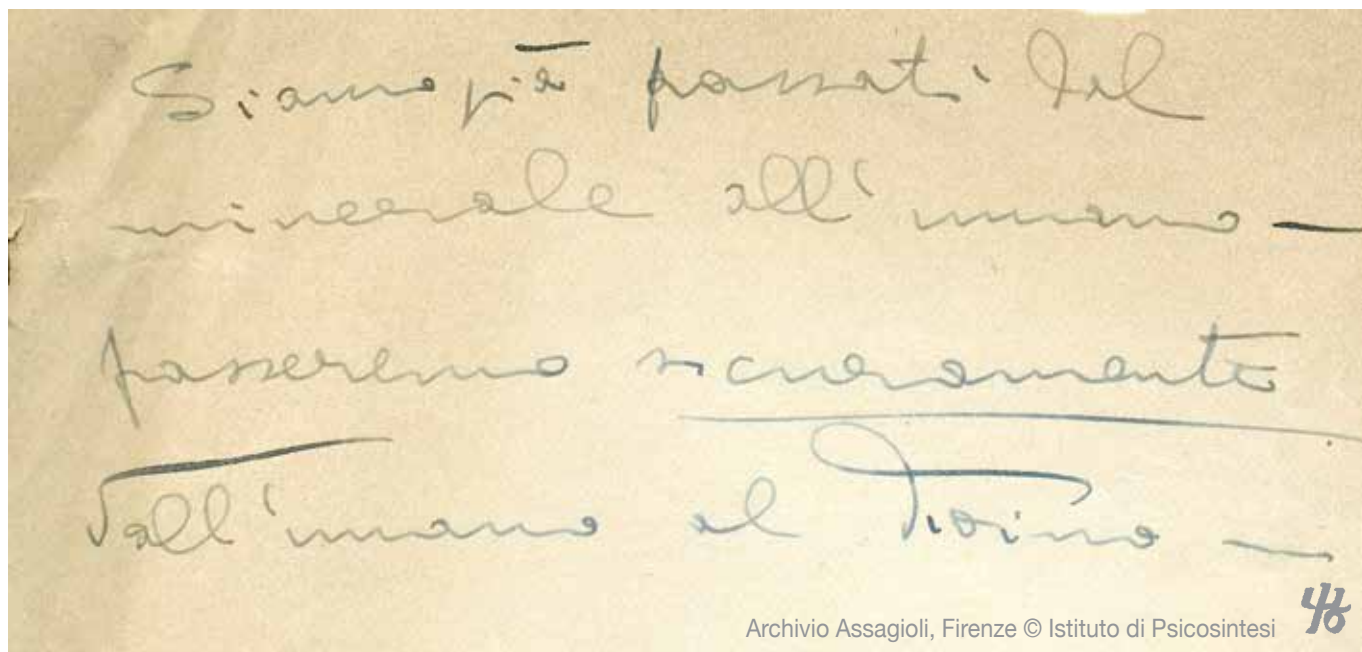 Siamo già passati dal
minerale all'umano —
passeremo sicuramente
dall'umano al Divino —
Archivio Assagioli, Firenze © Istituto di Psicosintesi